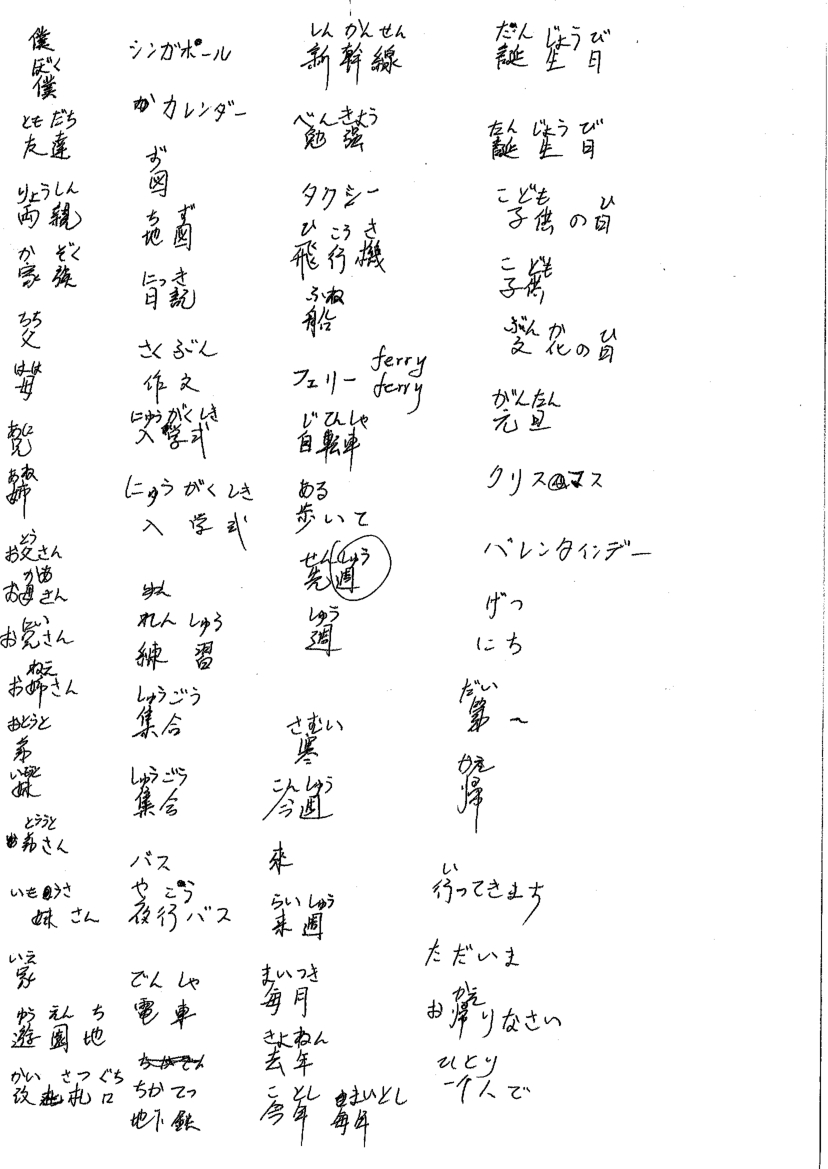 僕
ぼく
僕
ともだち
友達
りょうしん
両親
かぞく
家族
ちち
父
はは
母
あに
兄
あね
姉
とう
お父さん
かあ
お母さん
にい
お兄さん
ねえ
お姉さん
おとうと
弟
いもうと
妹
とううと
弟さん
妹さん
いえ
家
ゆうえんち
遊園地
かいさつぐち
改札口
シンガポール
か カレンダー
ず
図
ちず
地図
にっき
日記
さくぶん
作文
にゅうがくしき
入学式
にゅうがくしき
入学式
れんしゅう
練習
しゅうごう
集合
しゅうごう
集合
バス
やこう
夜行バス
でんしゃ
電車
ちかてつ
地下鉄
しんかんせん
新幹線
べんきょう
勉強
タクシー
ひこうき
飛行機
ふね
船
ferry
フェリー ferry
じひしゃ
自転車
ある
歩いて
せんしゅう
先週
しゅう
週
さむい
寒
こんしゅう
今週
来
らいしゅう
来週
まいつき
毎月
きょねん
去年
ことし まいとし
今年 毎年
だんじょうび
誕生日
たんじょうび
誕生日
こどものひ
子供の日
こども
子供
ぶんかのひ
文化の日
がんたん
元旦
クリスマス
バレンタインデー
げつ
にち
だい
第〜
かえ
帰
い
行ってきまち
ただいま
かえ
お帰りなさい
ひとり
一人で